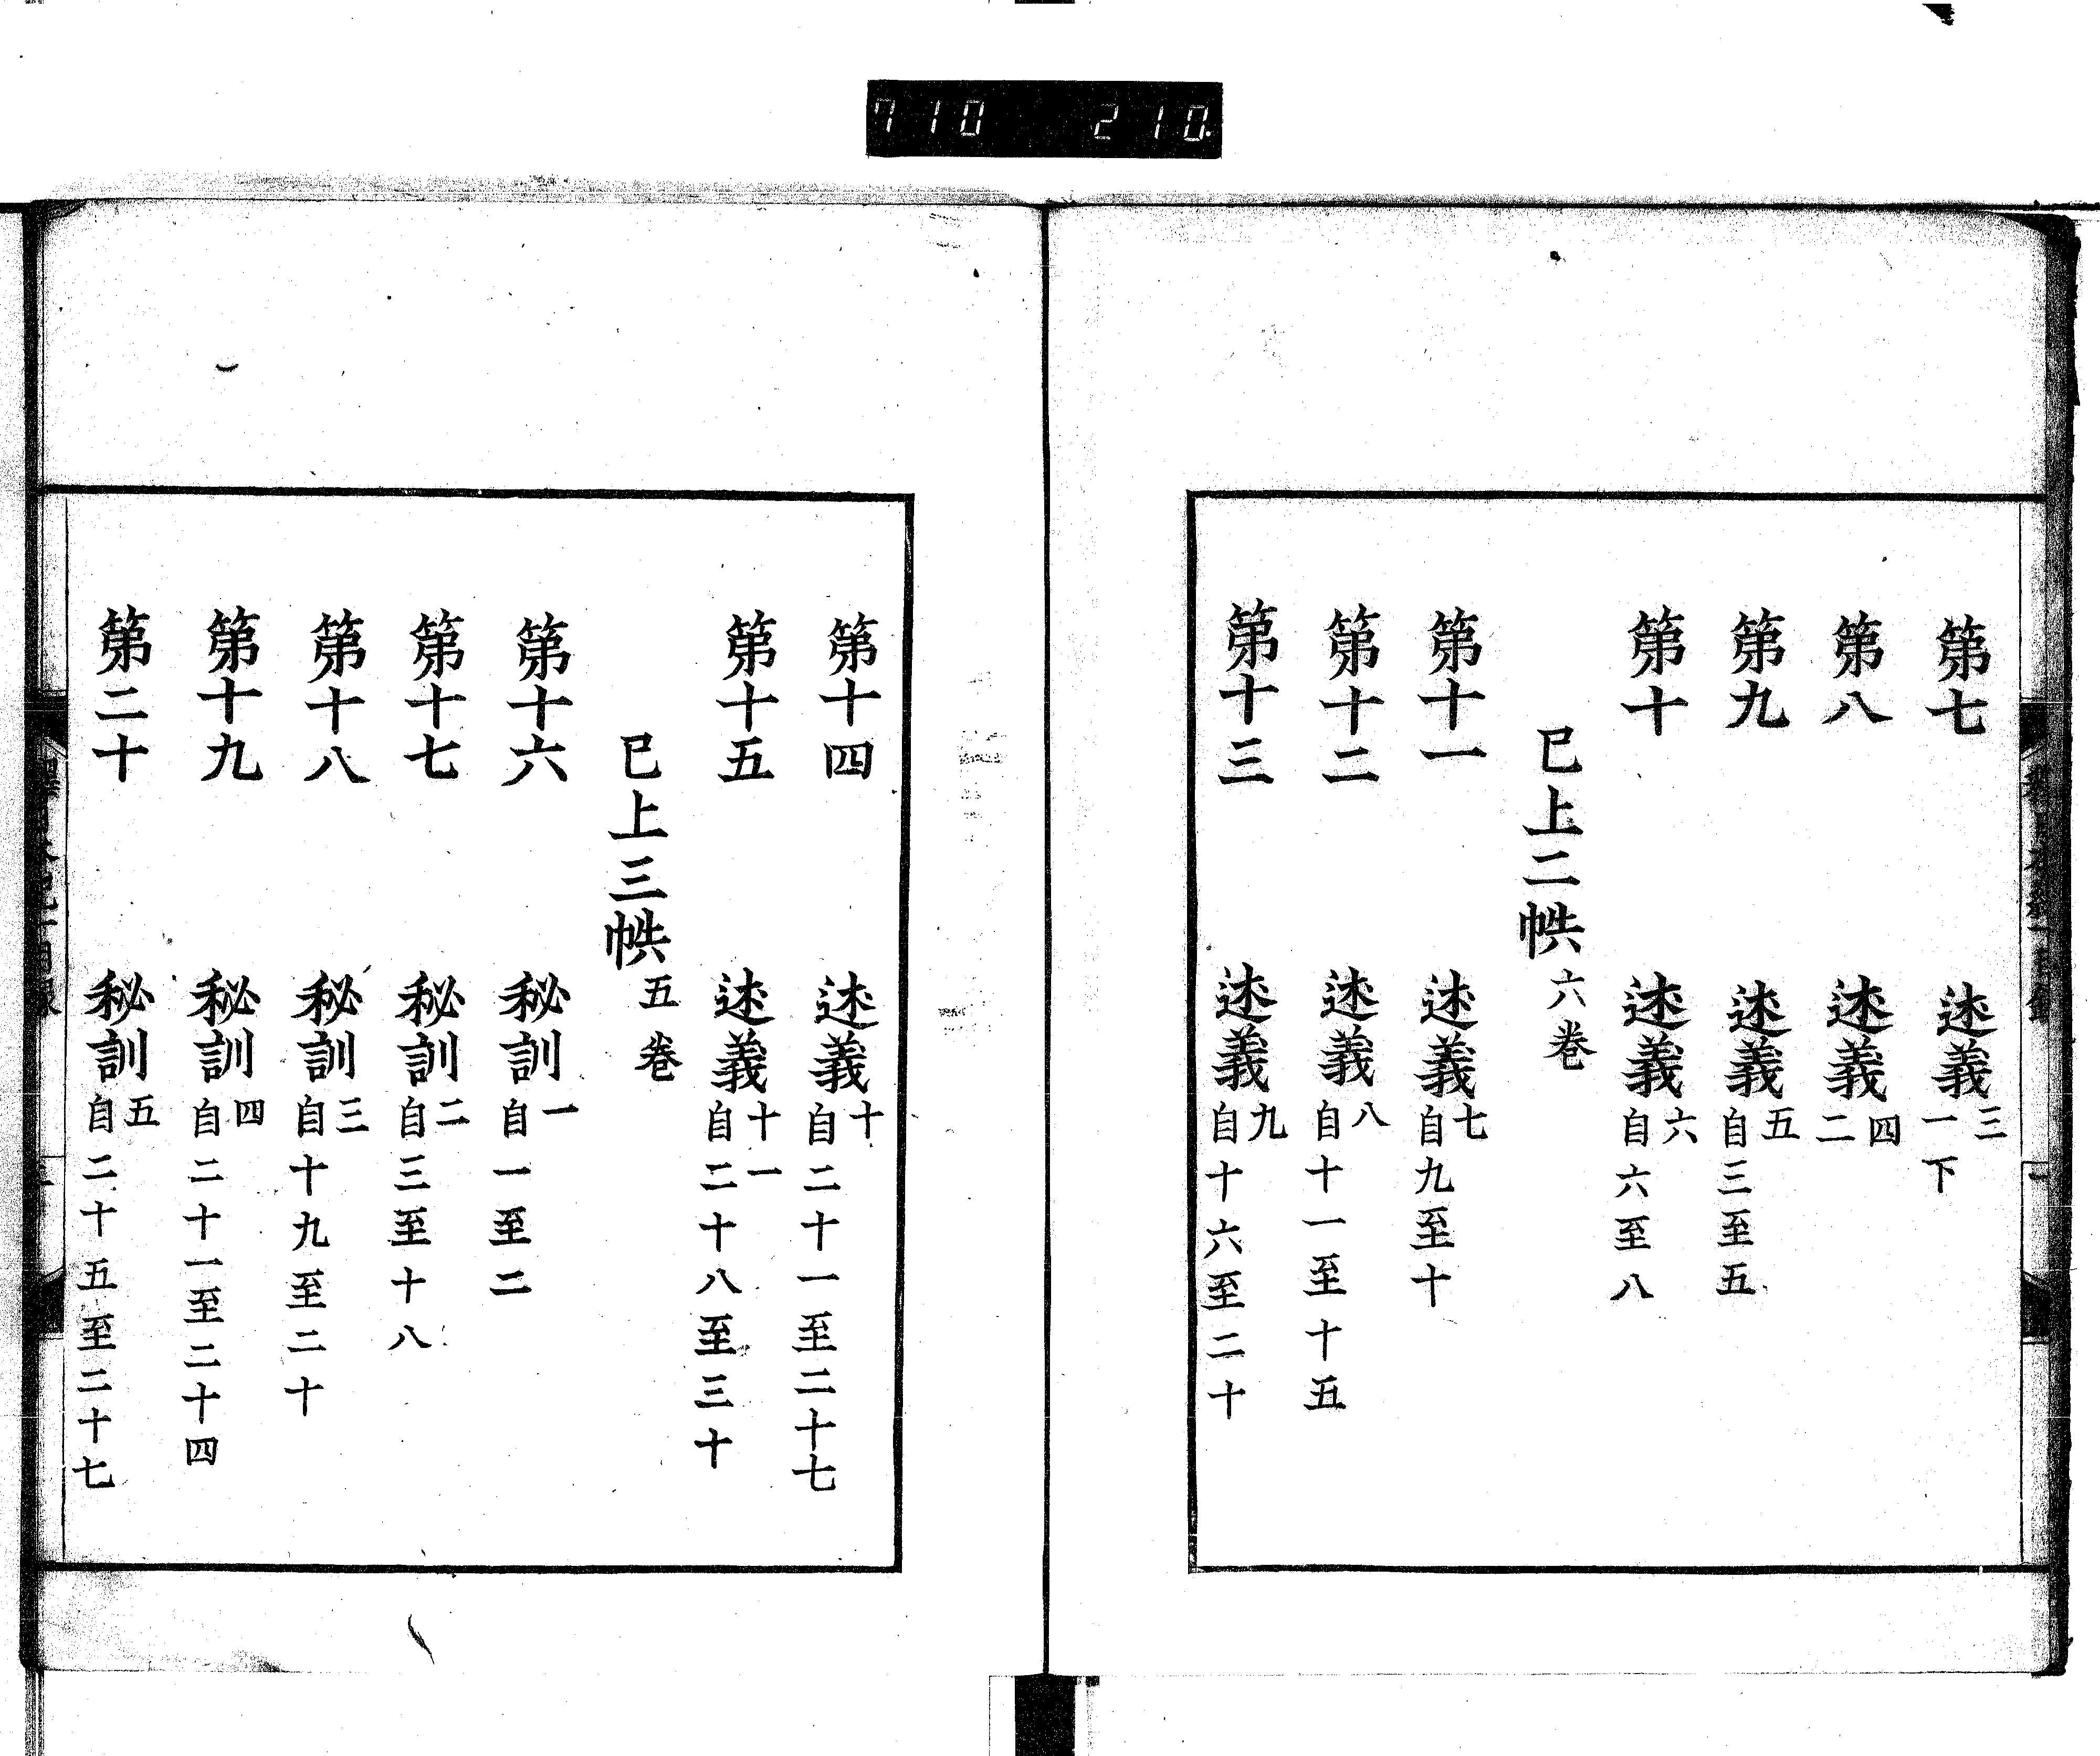 710 210.
第七 述義三 一下
第八 述義四 二
第九 述義五 自三至五
第十 述義六 自六至八
已上二帙六卷
第十一 述義七 自九至十
第十二 述義八 自十一至十五
第十三 述義九 自十六至二十
第十四 述義十 自二十一至二十七
第十五 述義十一 自二十八至三十
已上三帙五卷
第十六 秘訓一 自一至二
第十七 秘訓二 自三至十八
第十八 秘訓三 自十九至二十
第十九 秘訓四 自二十一至二十四
第二十 秘訓五 自二十五至二十七